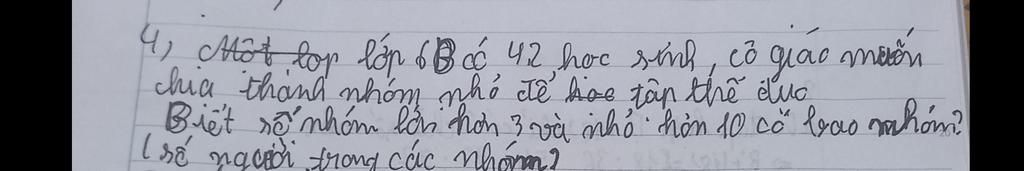 4) Một lop lớp 6B có 42 học sinh, cô giáo muốn
chia thành nhóm nhỏ để hoc tân thể dục
Biết số nhóm lớn hơn 3 và nhỏ hơn 10 có bao nhóm?
(số người trong các nhóm?